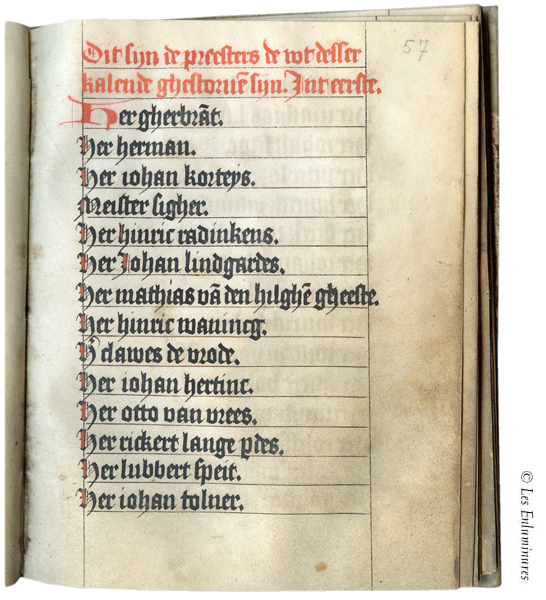 57
Dit sijn de preesters de wt desser
kalende ghestoruē sijn. Int eerste.
Her gherbrāt.
Her herman.
Her iohan korteys.
Meister sigher.
Her hinric radinkens.
Her Johan lindgardes.
Her mathias vā den hilghē gheeste.
Her hinric wanincg.
H clawes de vrode.
Her iohan hertinc.
Her otto van vrees.
Her rickert lange pdes.
Her lubbert speit.
Her iohan tolner.
© Les Enluminures